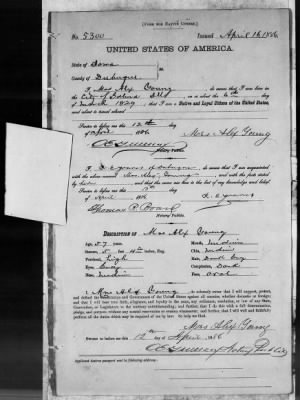 [FORM FOR NATIVE CITIZEN.]
No. 5300 Issued April 16, 1886
UNITED STATES OF AMERICA.
State of Iowa
County of Dubuque
I Mrs Alex Young
City of Galena Ills, on or about the 6th day
of March 1829; that I am a Native and Loyal Citizen of the United States,
and about to travel abroad.
Sworn to before me this 12th day
of April 1886
Mrs Alex Young
Notary Public.
do swear that I am acquainted
with the above named Mrs Alex Young, and with the facts stated
and that the same are true to the best of my knowledge and belief.
Sworn to before me this 12th day
of April 1886
Notary Public.
DESCRIPTION OF Mrs Alex Young
Age, 57 years.
Mouth, Medium
Stature, 5 feet
Chin, Medium
Forehead, High
Hair,
Eyes, Gray
Complexion, Dark
Nose, Medium
Face, Oval
I, Mrs Alex Young do solemnly swear that I will support, protect,
and defend the Constitution and Government of the United States against all enemies, whether domestic or foreign;
and that I will bear true faith, allegiance, and loyalty to the same, any ordinance, resolution, or law of any State,
Convention, or Legislature to the contrary notwithstanding; and further, that I do this with a full determination,
pledge, and purpose, without any mental reservation or evasion whatsoever; and further, that I will well and faithfully
perform all the duties which may be required of me by law: So help me God.
Mrs Alex Young
Sworn to before me this
12th day of April 1886
Notary Public
Applicant desires passport to be sent to following address: